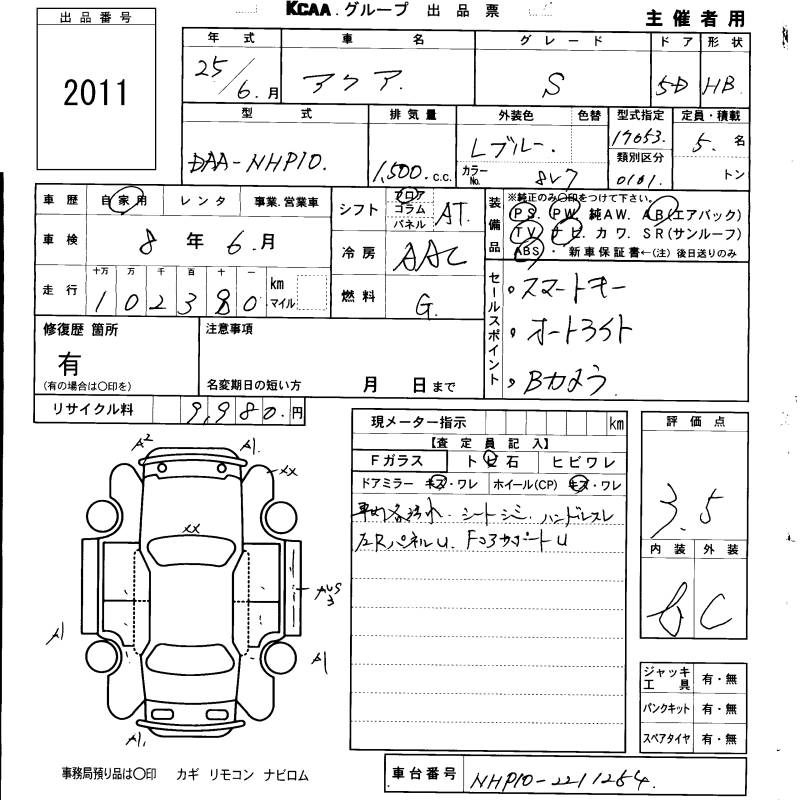 KCAA グループ 出品票
主催者用
出品番号
2011
年式 車名 グレード ドア 形状
25/6.月 アクア. S 5D HB.
型式 排気量 外装色 色替 型式指定 定員・積載
DAA-NHP10. 1,500.c.c. Lブルー. カラーNo. 8V7 17053. 類別区分 0101. 5.名 トン
車歴 自家用 レンタ 事業.営業車
車検 8年 6.月
走行 十万 万 千 百 十 一 km マイル
102380
シフト フロア コラム パネル AT.
冷房 AAC
燃料 G.
装備品 ※純正のみ○印をつけて下さい。
PS. PW. 純AW. AB(エアバック)
TV ナビ. カワ. SR(サンルーフ)
ABS ・ 新車保証書←(注)後日送りのみ
セールスポイント
・スマートキー
・オートライト
・Bカメラ.
修復歴 箇所
有
(有の場合は○印を)
注意事項
名変期日の短い方 月 日まで
リサイクル料 9,980.円
現メーター指示 km
【査定員記入】
Fガラス トビ石 ヒビワレ
ドアミラー キズ・ワレ ホイール(CP) キズ・ワレ
シートシミ. ハンドルスレ
左Rパネルu. Fコアサポートu
評価点
3.5
内装 外装
C
A2 A1.
XX
XX
A1 A1
A1.
ジャッキ工具 有・無
パンクキット 有・無
スペアタイヤ 有・無
事務局預り品は○印 カギ リモコン ナビロム
車台番号 NHP10-2211264.